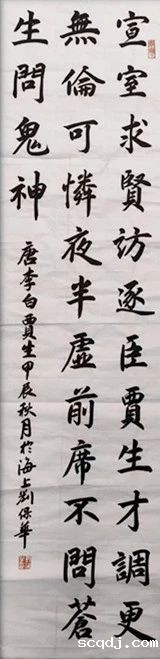 宣室求賢訪逐臣賈生才調更
無倫可憐夜半虛前席不問蒼
生問鬼神
唐李白賈生甲辰秋月於海上劉保華
www.scqdj.com